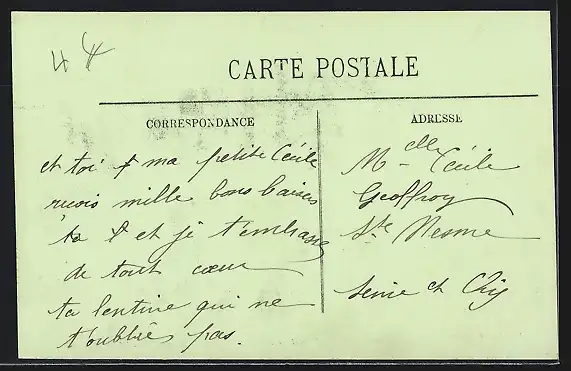 CARTE POSTALE
CORRESPONDANCE
et toi ma petite Cécile
recois mille bons baisers
et je t'embrasse
de tout coeur
ta lentine qui ne
t'oublies pas.
ADRESSE
Melle Cécile
Geoffroy
Ste Mesme
Seine et